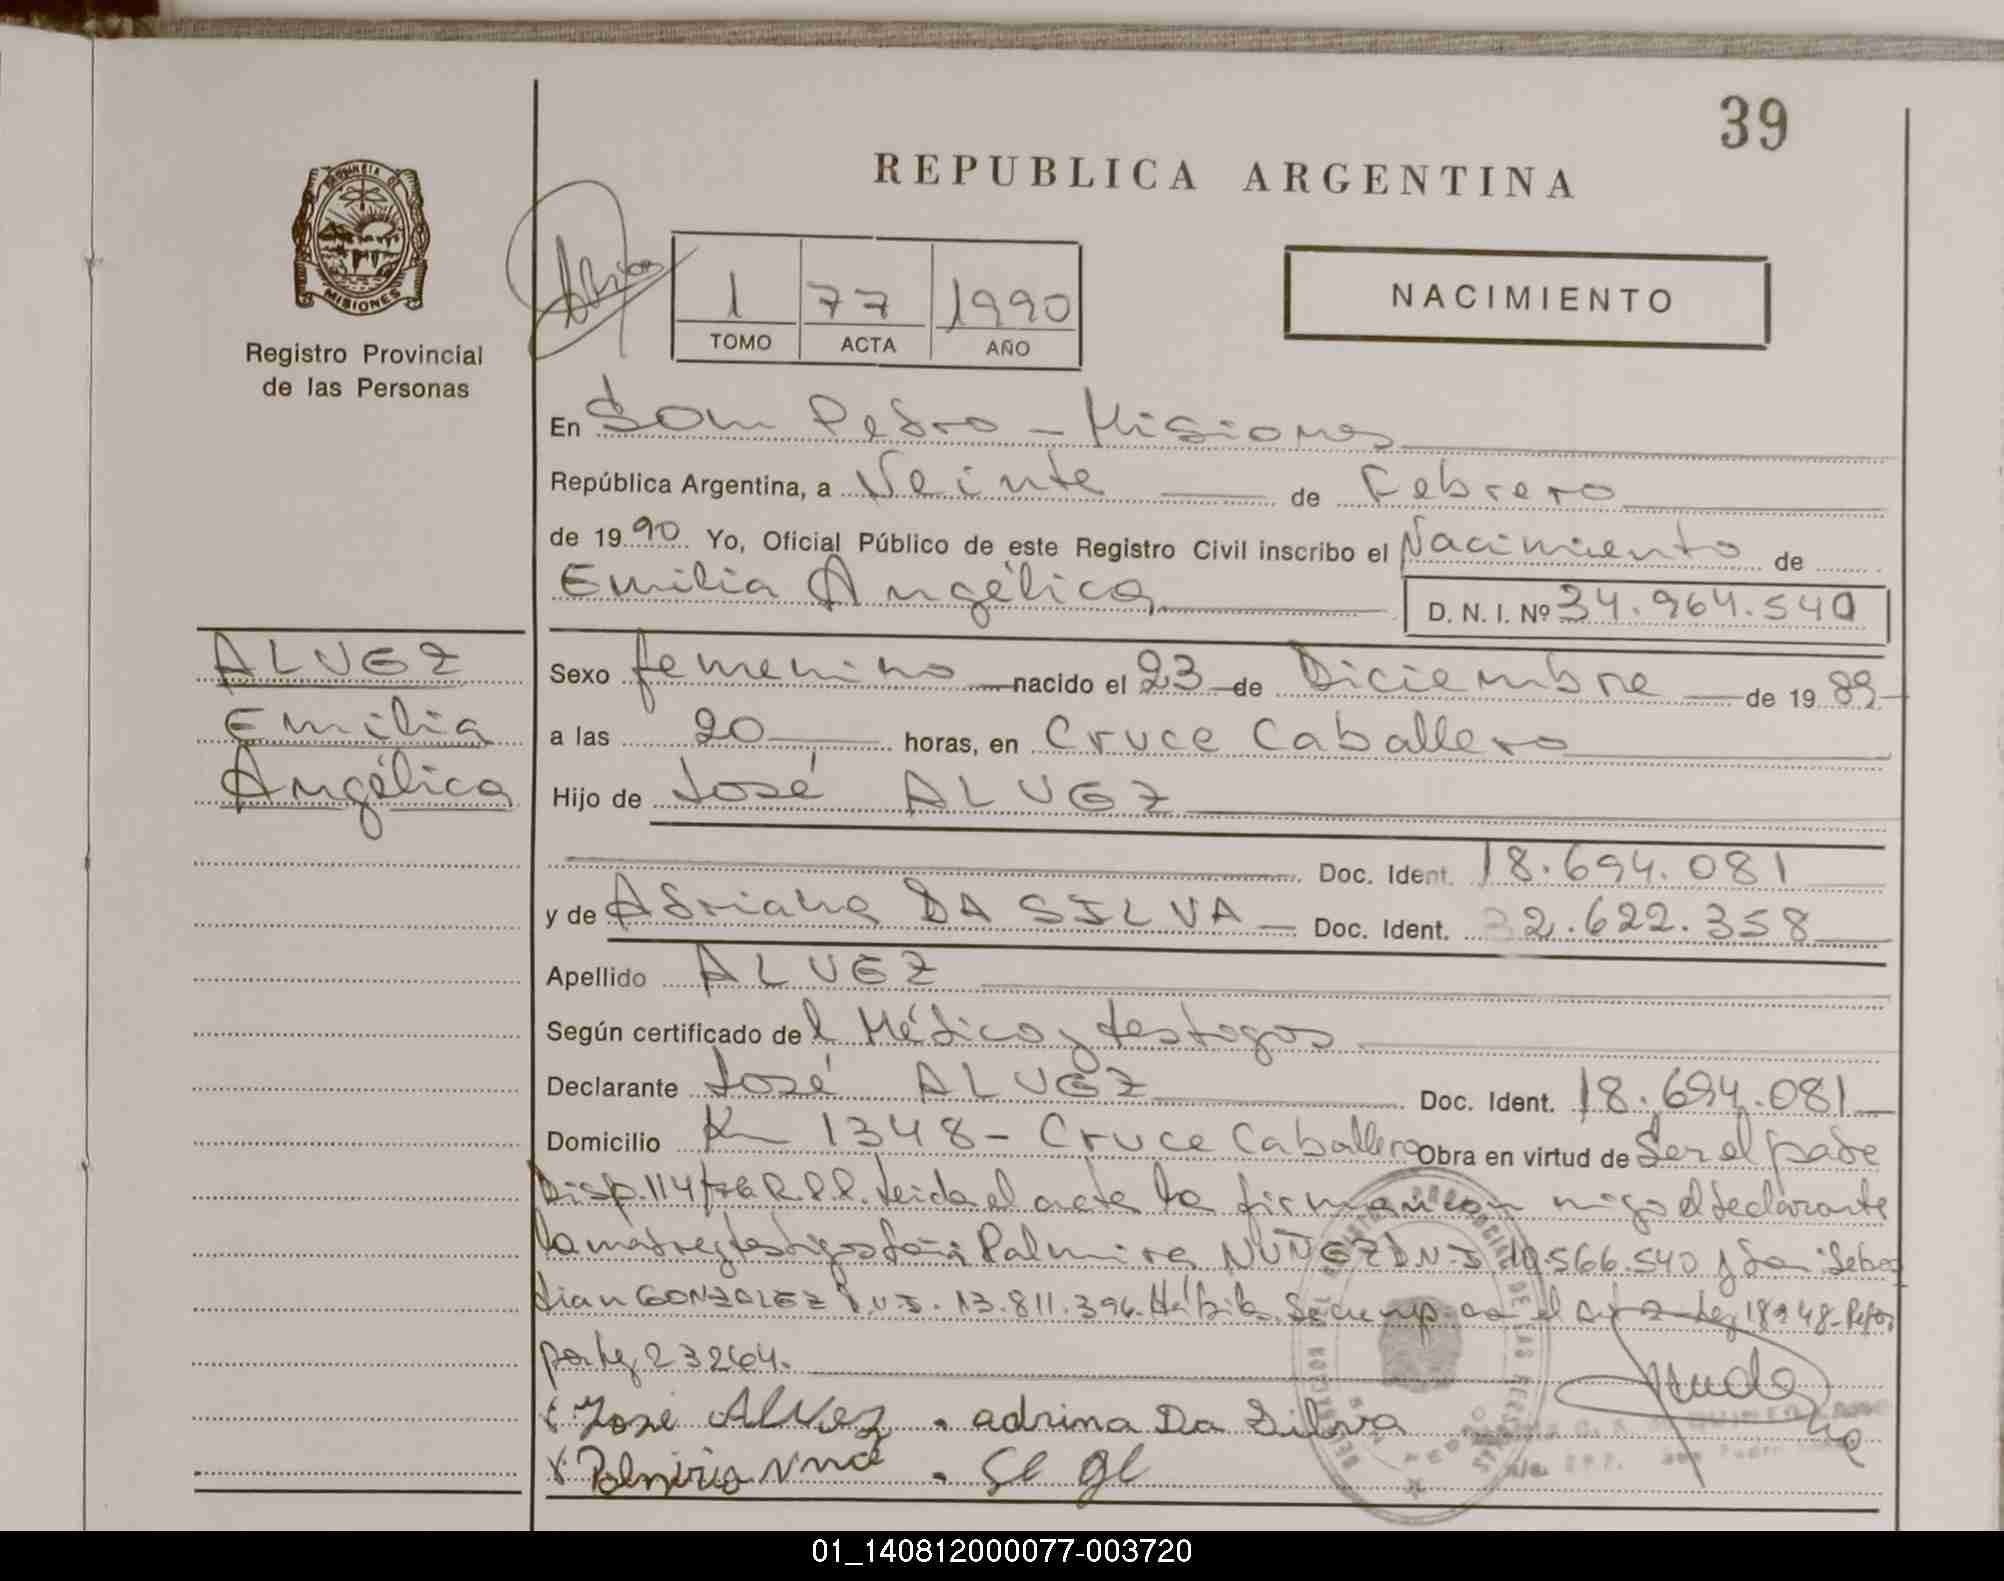 39
REPUBLICA ARGENTINA
PROVINCIA DE
MISIONES
Registro Provincial
de las Personas
1 77 1990
TOMO ACTA AÑO
NACIMIENTO
En San Pedro - Misiones
República Argentina, a Veinte de Febrero
de 1990 Yo, Oficial Público de este Registro Civil inscribo el Nacimiento de
Emilia Angélica D. N. I. Nº 34.964.540
ALVEZ
Emilia
Angélica
Sexo femenino nacido el 23 de Diciembre de 1989
a las 20 horas, en Cruce Caballero
Hijo de José ALVEZ
Doc. Ident. 18.694.081
y de Adriana DA SILVA Doc. Ident. 32.622.358
Apellido ALVEZ
Según certificado del Médico y testogos
Declarante José ALVEZ Doc. Ident. 18.694.081
Domicilio Km 1348 - Cruce Caballero Obra en virtud de Ser el padre
Disp. 114/76 R.P.P. Leida el acta la firman con migo el declarante
la madre y testigos Palmira NUÑEZ D.N.I. 10.566.540 y Sebas
tian GONZALEZ D.N.I. 13.811.394. el Ley 18248
por Ley 23264.
José Alvez . adrina Da Silva